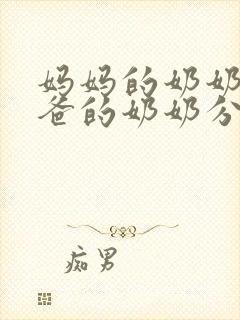 妈妈的奶奶
爸的奶奶分
痴男